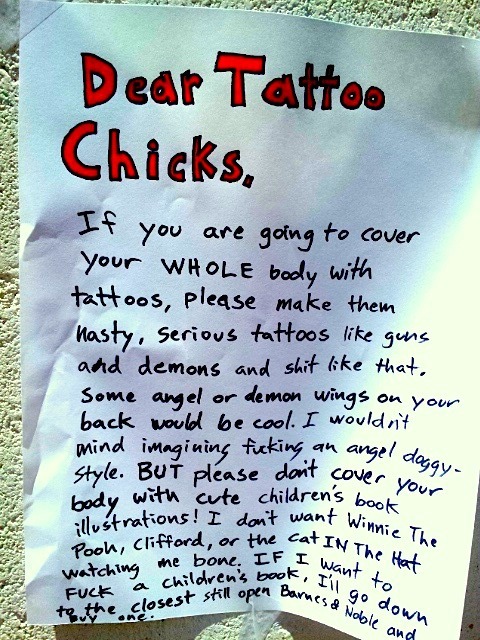 Dear Tattoo
Chicks,
If you are going to cover
your WHOLE body with
tattoos, please make them
nasty, serious tattoos like guns
and demons and shit like that.
Some angel or demon wings on your
back would be cool. I wouldn't
mind imagining fucking an angel doggy-
style. BUT please don't cover your
body with cute children's book
illustrations! I don't want Winnie The
Pooh, Clifford, or the Cat IN The Hat
watching me bone. IF I want to
FUCK a children's book, I'll go down
to the closest still open Barnes & Noble and
buy one.